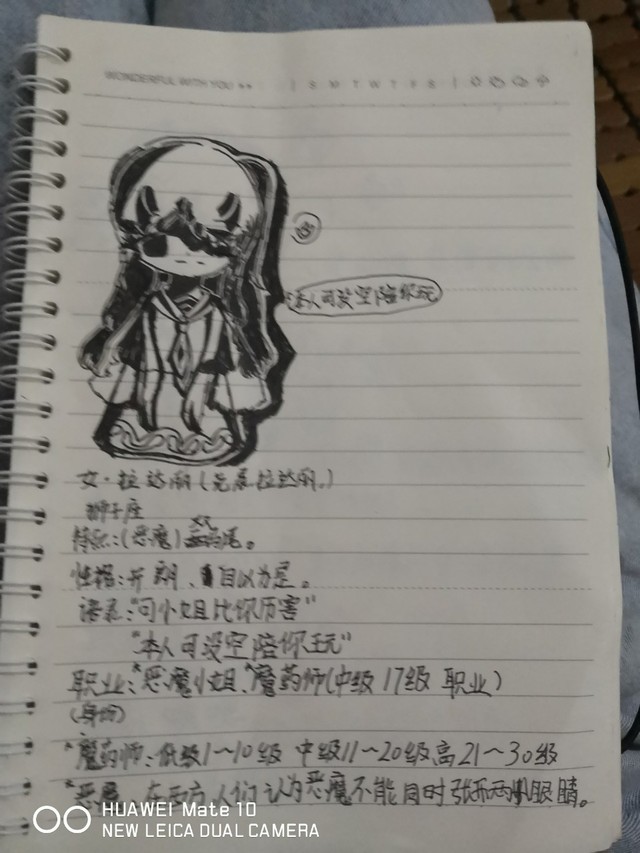 WONDERFUL WITH YOU
S M T W T F S
本人可没空陪你玩
女·拉达丽(克系拉达丽.)
狮子座
特征:(恶魔) 双尾。
性格:开朗、自以为是。
语录:"可小姐比你历害"
"本人可没空陪你玩"
职业:"恶魔小姐""魔药师(中级17级 职业)
(身份)
*魔药师:低级1～10级 中级11～20级高21～30级
*恶魔 在西方人们认为恶魔不能同时张开两只眼睛。
HUAWEI Mate 10
NEW LEICA DUAL CAMERA